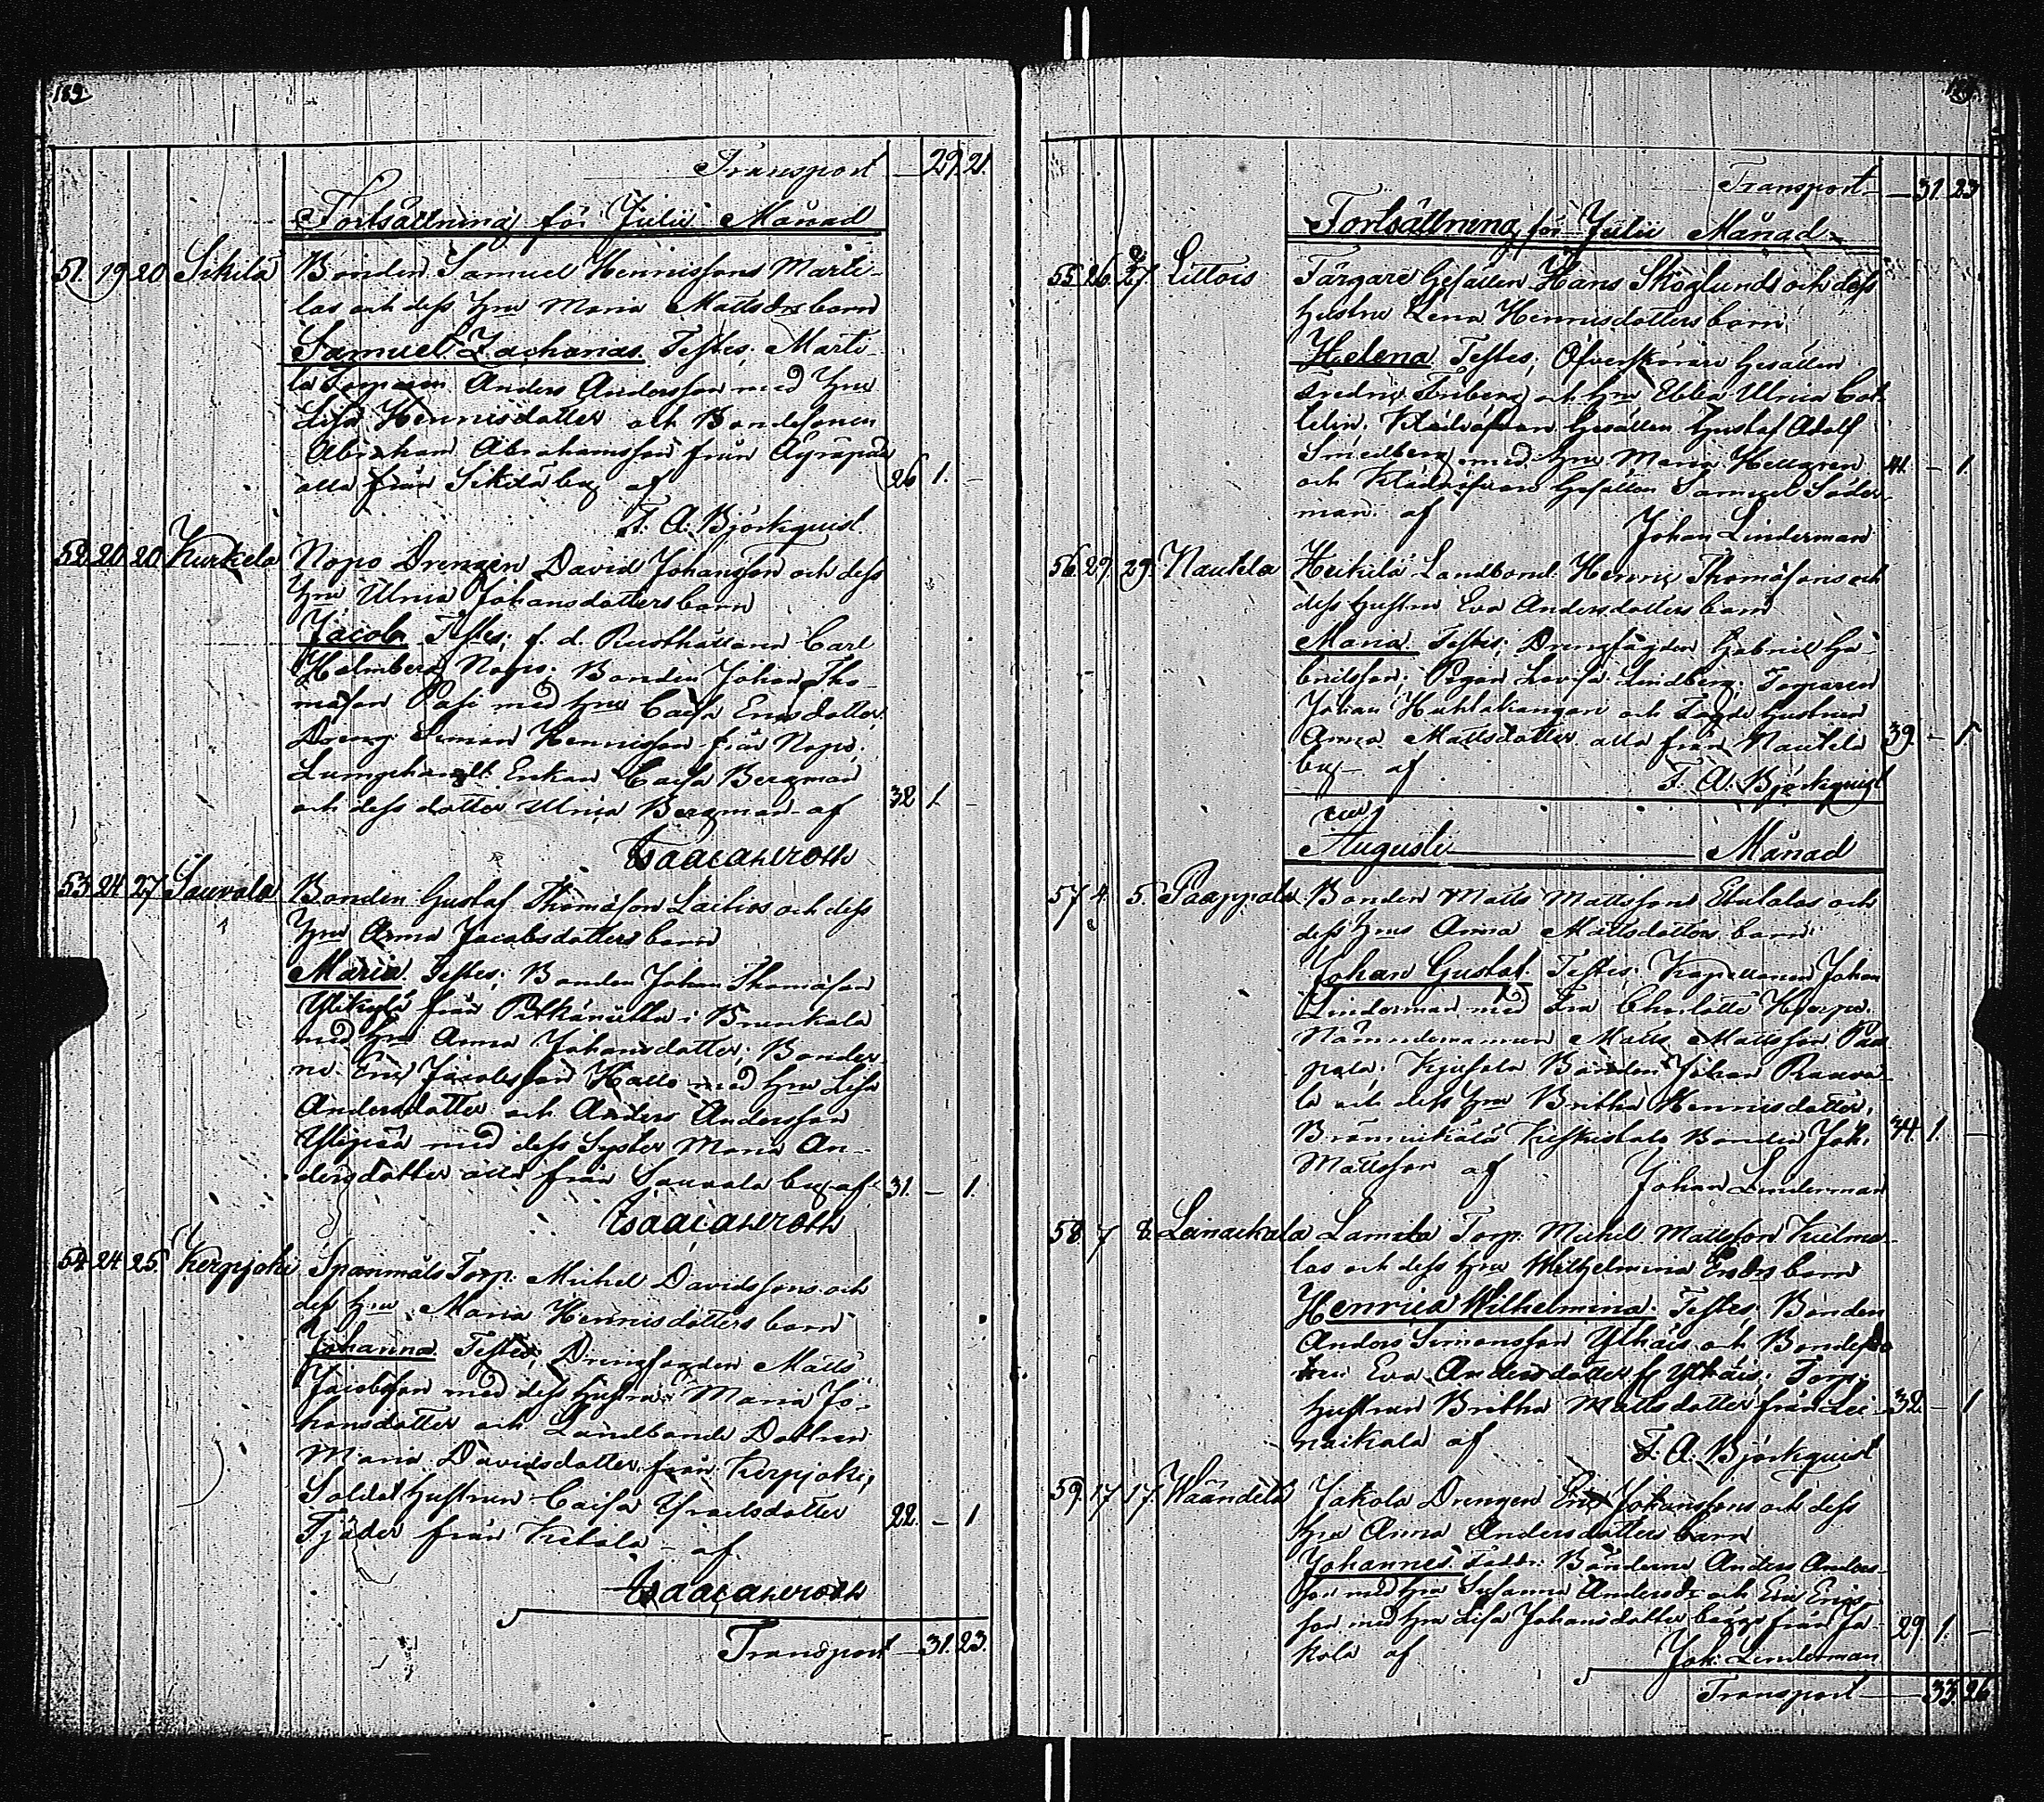 189.
Transport — 29. 21.
Fortsättning för Julii Månad
51. 19 20 Sikilä Bonden Samuel Henrissons Marti-
las och dess Hru Maria Mattsdrs barn
Samuel Zacharias. Testes, Marti-
la Torparen Anders Andersson med Hru
Lisa Henricsdotter och Bondesonen
Abraham Abrahamsson från Äyräpää
alla från Sikilä by af 26 1. —
F. A. Björkquist
52. 20 20 Kurkela Nopo Drengen David Johansson och dess
Hru Ulrica Johansdotters barn
Jacob Testes; f. d. Rusthållaren Carl
Holmberg Nopo. Bonden Johan Tho-
masson Pasi med Hru Caisa Ericsdotter
Dreng Simon Henrisson från Nopo.
Enkan Caisa Bergman
och dess dotter Ulrica Bergman af 32 1. —
Isaac Ahlroth
53. 24 27 Sauvala Bonden Gustaf Thomasson Laitios och dess
Hru Anna Jacobsdotters barn
Maria. Testes; Bonden Johan Thomasson
Ylikylä från i Brunkala
med Hru Anna Johansdotter; Bönder-
ne Eric Jacobsson Kallo med Hru Lisa
Andersdotter och Anders Andersson
med dess Syster Maria An-
dersdotter alla från Sauvala by af 31. — 1.
Isaac Ahlroth
54. 24 25. Kerpjoki Spanmåls Torp. Michel Davidssons och
dess Hru Maria Henricsdotters barn
Johanna Testes; Drengfogden Matts
Jacobsson med dess Hustru Maria Jo-
hansdotter och Landbonde Dottren
Maria Davidsdotter från Kerpjoki,
Soldat Hustrun Caisa Israelsdotter
Tjäder från Ketola — af 22. — 1
Isaac Ahlroth
Transport — 31. 23.
Transport — 31. 23
Fortsättning för Julii Månad
55. 26. 27. Littois Färgare Gesällen Hans Skoglunds och dess
Hustru Lena Henricsdotters barn
Helena Testes, Öfverskärare Gesällen
Fredric Friberg och Hru Ebba Ulrica Cat-
Gesällen Gustaf Adolf
Smedberg med Hru Maria Hellgren 41. — 1.
och Gesällen Samuel Söder-
man. af Johan Linderman
56. 29. 29. Nautela Heikilä Landbond. Henric Thomassons och
dess Hustru Eva Andersdotters barn
Maria. Testes; Drengfogden Gabriel Ga-
brielsson; Pigan Lovisa Lindberg; Torparen
Johan Huhtakangan och Hustrun
Anna Mattsdotter alla från Nautela 39. — 1
by — af F. A. Björkquist
Augusti Månad
57. 4. 5. Paappala Bonden Matts Mattssons Etulalas och
dess Hrus Anna Mattsdotters barn
Johan Gustaf. Testes. Kapellanen Johan
Linderman med Fru Charlotte Hjerpe.
Nämndemannen Matts Mattsson Paa-
pala. Bonden Johan Raava-
la och dess Hru Britha Henricsdotter,
Bonden Joh. 34. 1. —
Mattsson af Johan Linderman
58. 7 8. Leinaekala Torp. Michel Mattsson Kulma-
las och dess Hru Wilhelmina Ersdrs barn
Henrica Wilhelmina. Testes; Bonden
Anders Simonsson Ylhäis och Bondehu-
strun Eva Andersdotter fr. Ylhäis; Torp.
Hustrun Britha Mattsdotter från Lei- 32. — 1
naikala af F. A. Björkquist
59. 17 17. Wäändelä Jakola Drengen Eric Johanssons och dess
Hru Anna Andersdotters barn
Johannes Bönderne Anders Anders-
son med Hru Susanna Andersdr och Eric Erics-
son med Hru Lisa Johansdotter begge från Ja- 29. 1. —
kola af Joh. Linderman
Transport — 33. 26